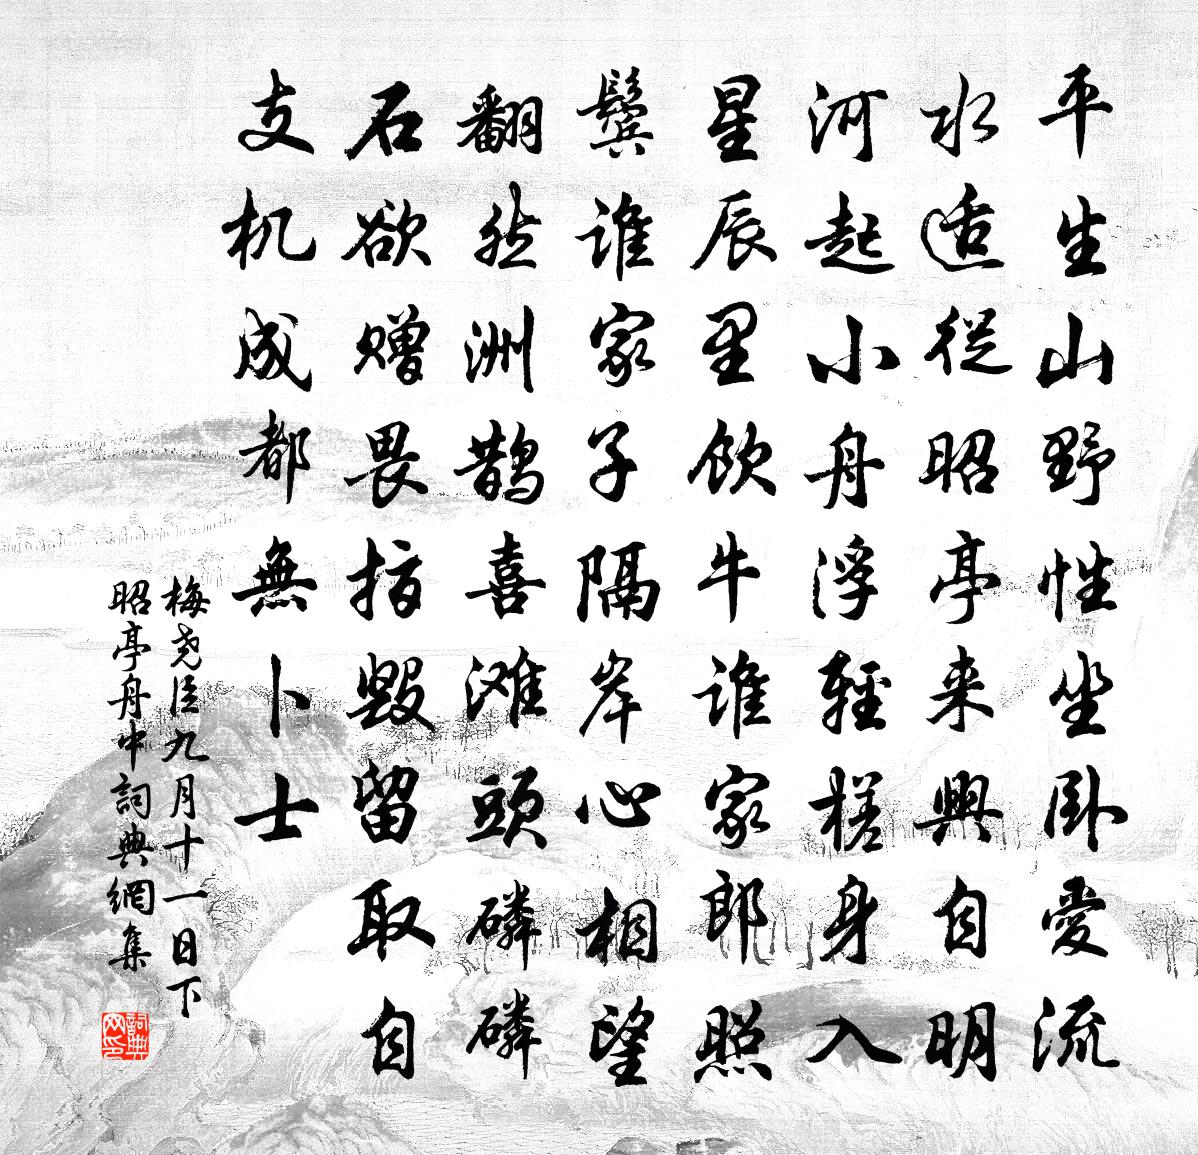 平生山野性坐卧愛流
水适從昭亭来興自明
河起小舟浮輕槎身入
星辰里飲牛谁家郎照
鬓谁家子隔岸心相望
翻然洲鹊喜滩頭磷磷
石欲赠畏指毁留取自
支机成都無卜士
梅尧臣九月十一日下
昭亭舟中詞典網集
詞典网印